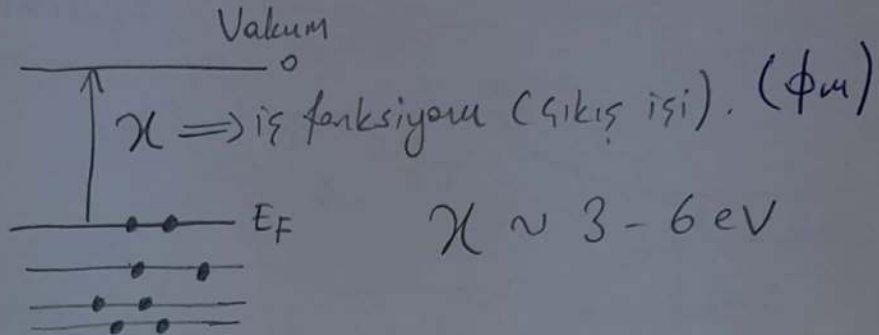 Vakum
0
χ ⟹ iş fonksiyonu (çıkış işi). (ϕm)
EF
χ ~ 3 - 6 eV